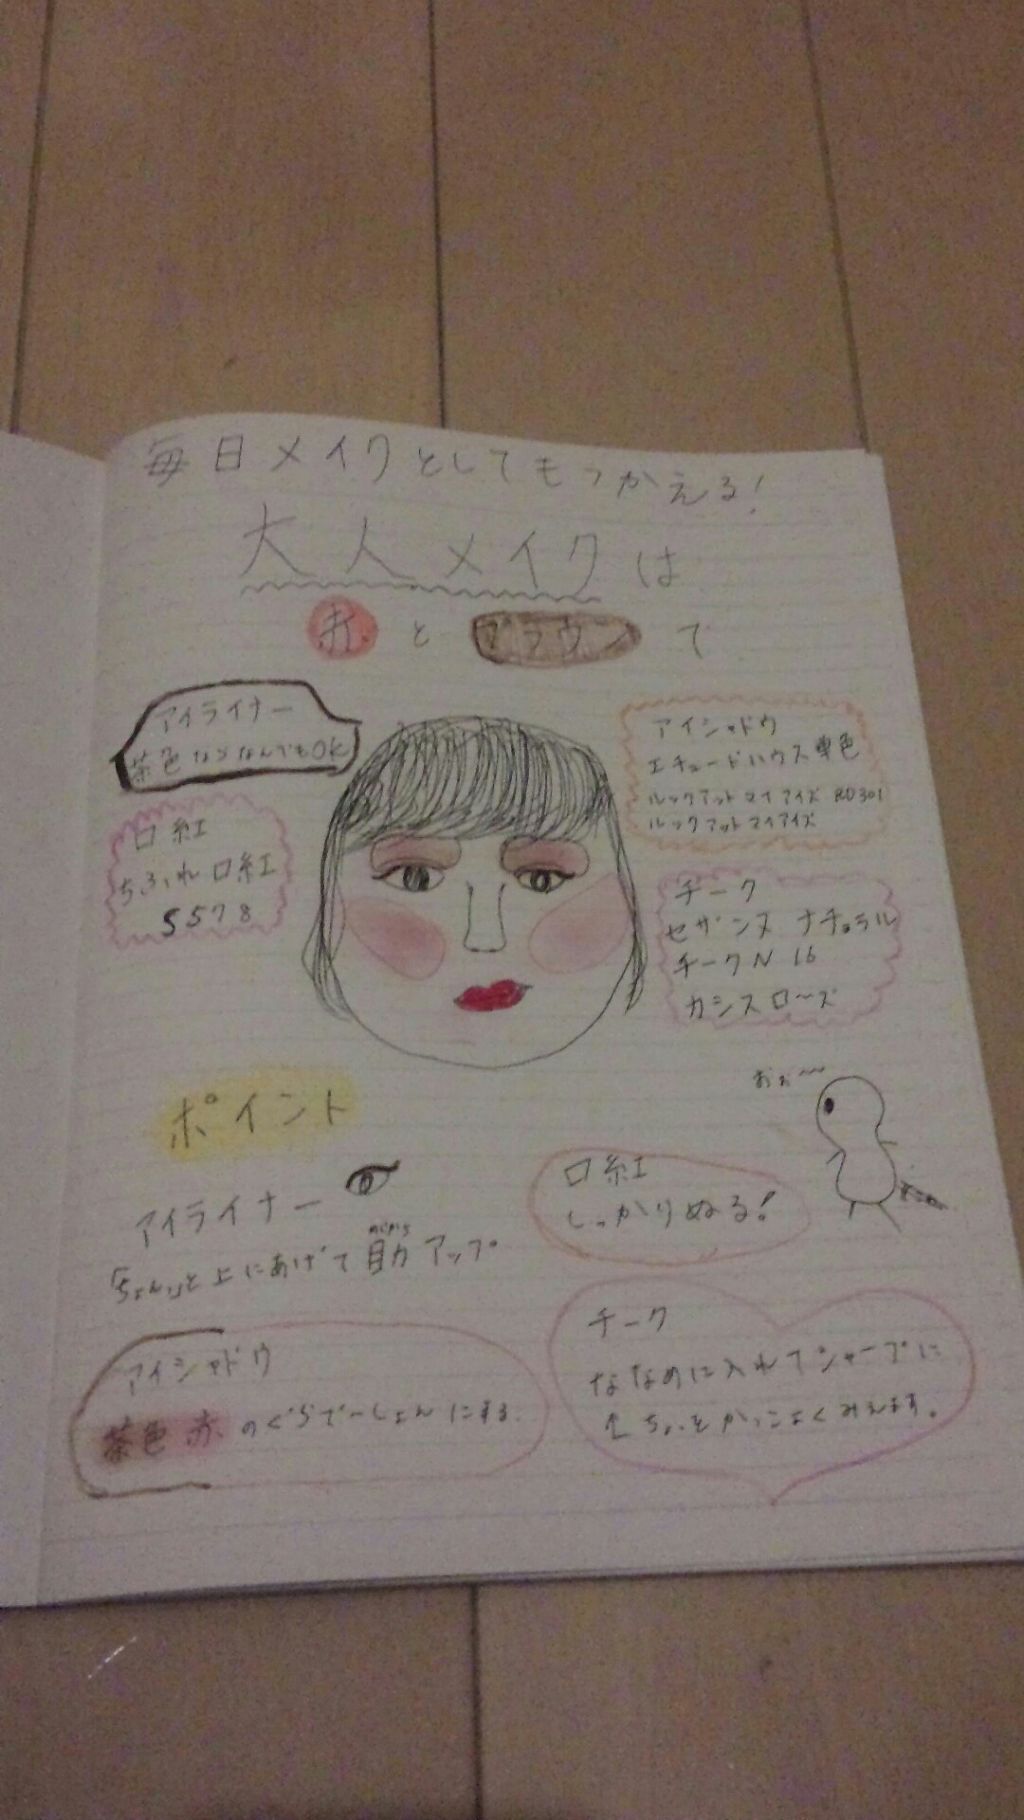 毎日メイクとしてもつかえる!
大人メイクは
赤とブラウンで
アイライナー
茶色ならなんでもOK
アイシャドウ
エチュードハウス単色
ルックアットマイアイズ RD301
ルックアットマイアイズ
口紅
ちふれ口紅
5578
チーク
セザンヌ ナチュラル
チークN 16
カシスローズ
ポイント
おぉ〜
アイライナー
「ちょん」と上にあげて
アップ
口紅
しっかりぬる!
アイシャドウ
茶色 赤 のぐらでーしょんにする
チーク
ななめに入れてシャープに
ちょっとかっこよくみえます。